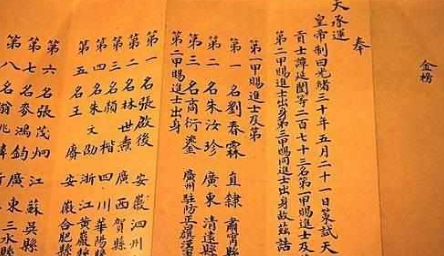 金榜
奉
天承運
皇帝制曰光緒三十年五月二十一日策試天
貢士譚延闓等二百七十三名第一甲賜進士及
第二甲賜進士出身第三甲賜同進士出身故茲誥
第一甲賜進士及第
第一名劉春霖 直隸肅寧縣
第二名朱汝珍 廣東清遠縣
第三名商衍鎏 廣州駐防正旗漢
第二甲賜進士出身
第一名張啟後 安徽泗州
第二名林世燾 廣西賀縣
第三名顏楷 四川華陽縣
第四名朱文劭 浙江黃巖縣
第五名王賡 安徽合肥縣
第六名張茂炯 江蘇吳縣
第七名麥鴻鈞 廣東三水縣
第八名翁兆